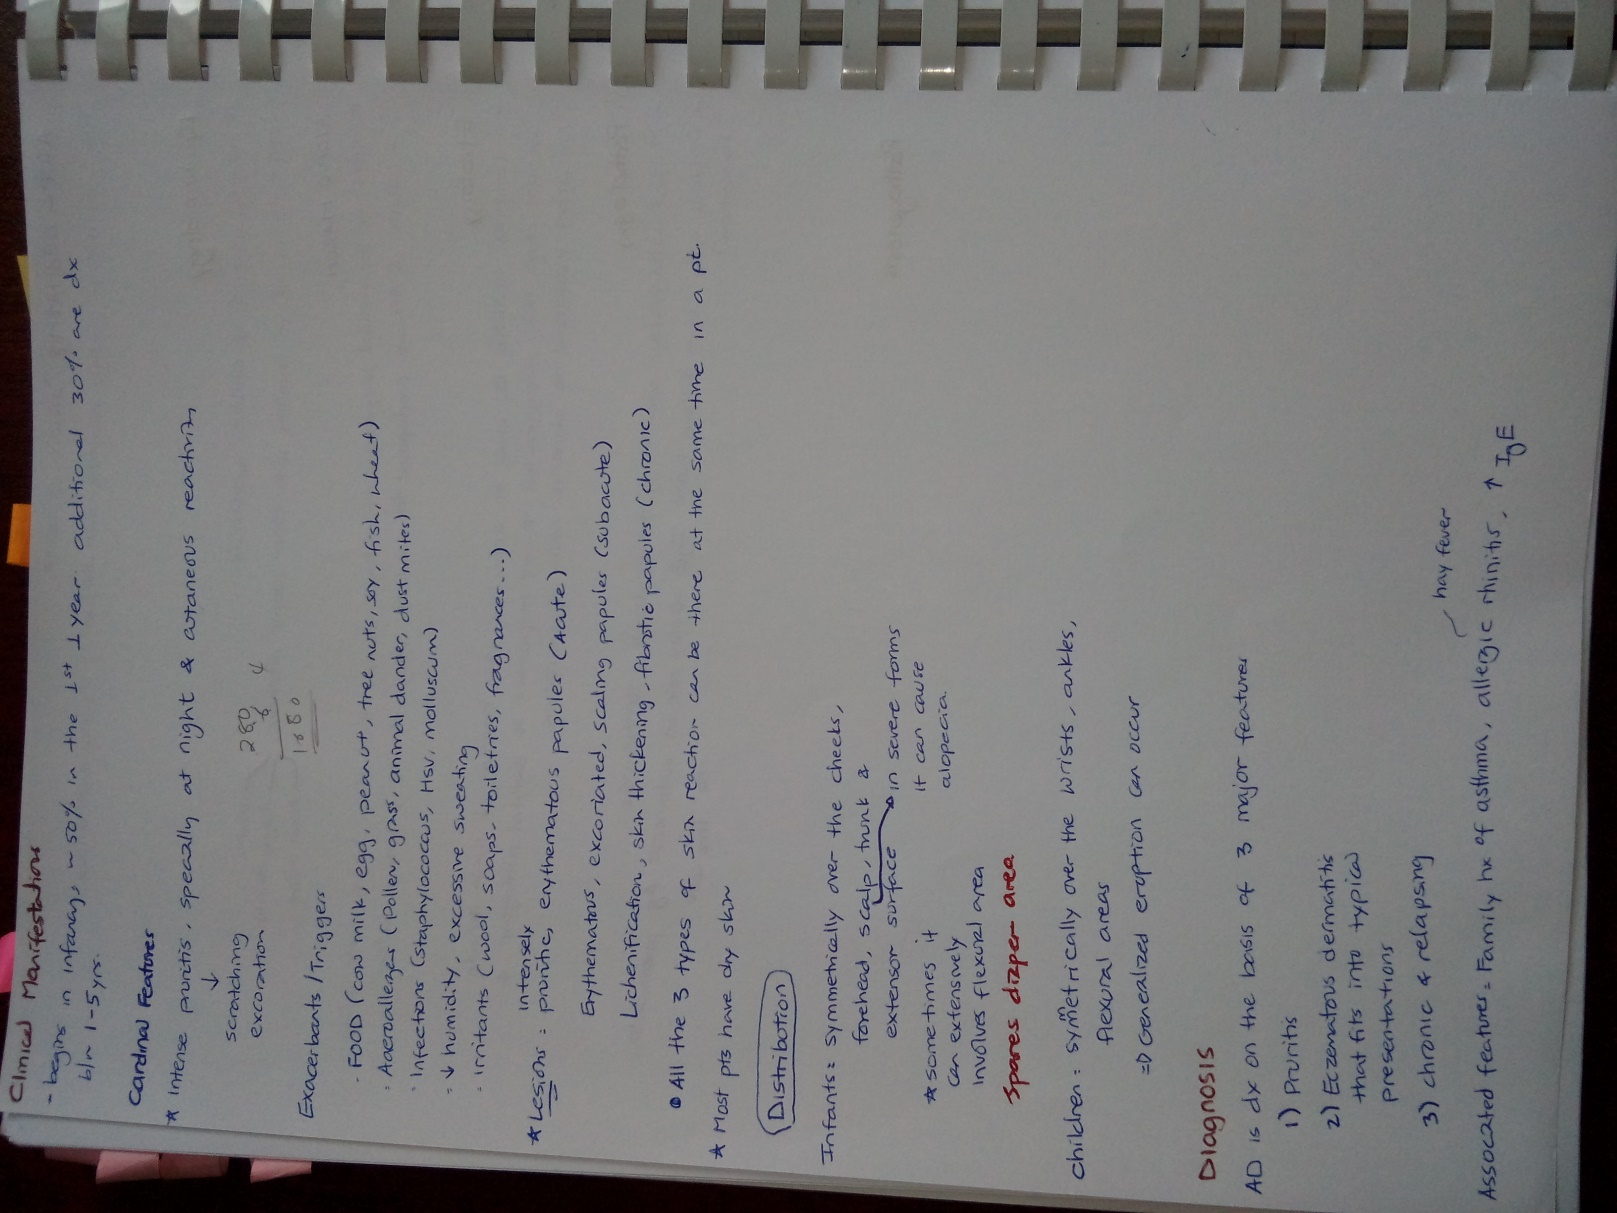 Clinical Manifestations
- begins in infancy, ~ 50% in the 1st 1 year. additional 30% are dx
b/n 1-5 yrs.
Cardinal Features
* Intense pruritis, specially at night & cutaneous reactivity
↓
scratching
excoration
280
6 4
1680
Exacerbants / Triggers
- FOOD (cow milk, egg, peanut, tree nuts, soy, fish, wheat)
- Aeroallerges (Pollen, grass, animal dander, dust mites)
- Infections (Staphylococcus, HSV, molluscum)
- ↓ humidity, excessive sweating
- irritants (wool, soaps, toiletries, fragrances...)
* Lesions = intensely pruritic, erythematous papules (Acute)
Erythematous, excoriated, scaling papules (subacute)
Lichenification, skin thickening, fibrotic papules (chronic)
• All the 3 types of skin reaction can be there at the same time in a pt.
* Most pts have dry skin
Distribution
Infants = symmetrically over the cheeks,
forehead, scalp, trunk &
extensor surface → in severe forms
it can cause
alopecia
* sometimes it
can extensively
involves flexural area
Spares diaper area
Children = symmetrically over the wrists, ankles,
flexural areas
=> Generalized eroption can occur
Diagnosis
AD is dx on the basis of 3 major features
1) Pruritis
2) Eczematous dermatitis
that fits into typical
presentations
3) chronic & relapsing
hay fever
Assocated features = Family hx of asthma, allergic rhinitis, ↑ IgE